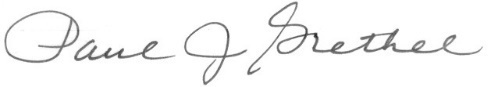 Paul J Grethel